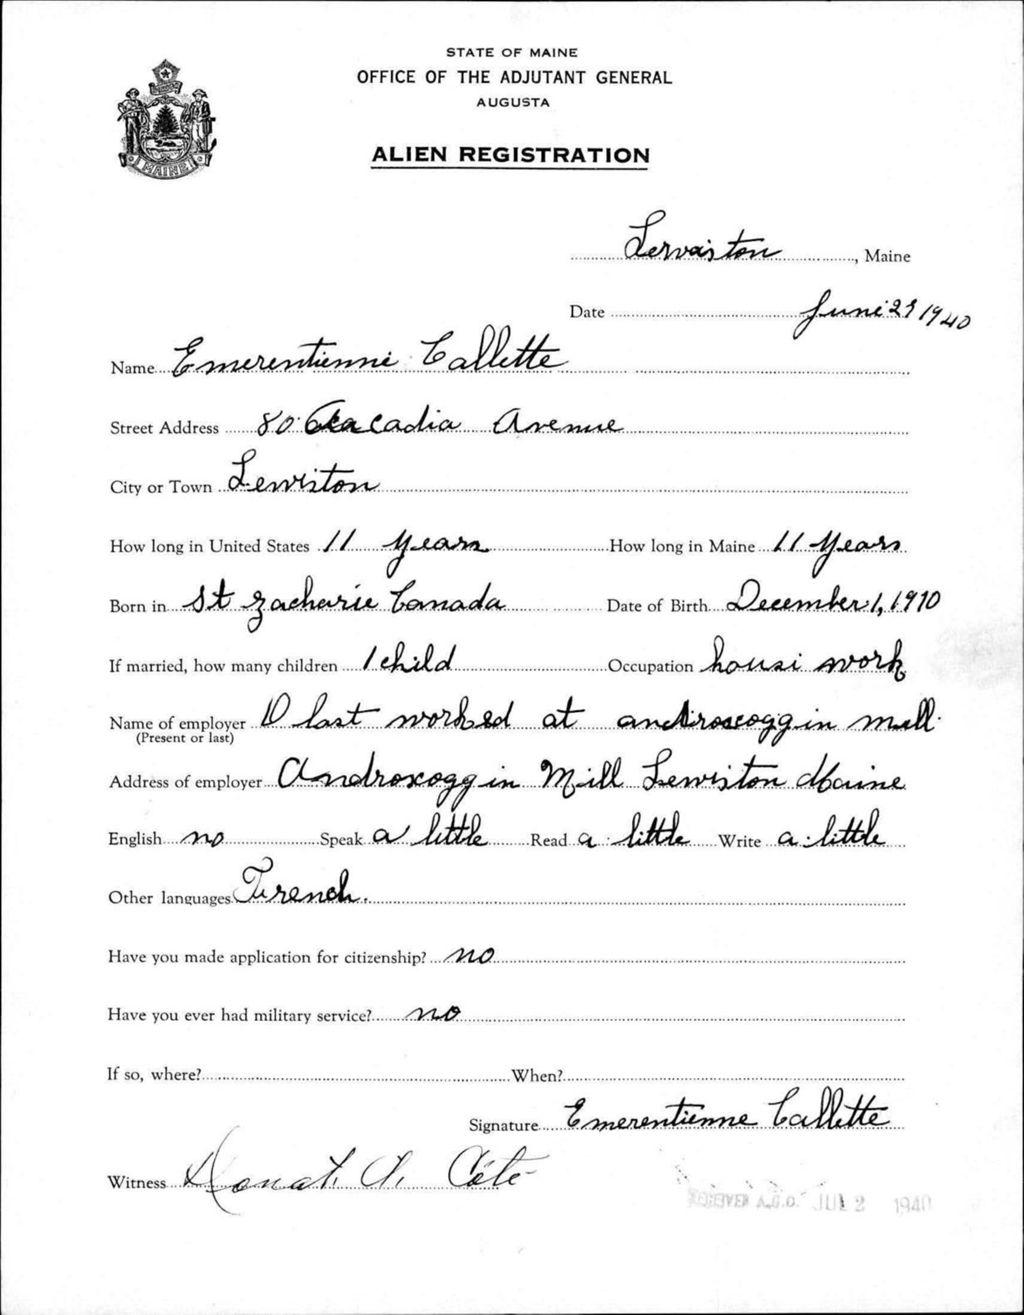 STATE OF MAINE
OFFICE OF THE ADJUTANT GENERAL
AUGUSTA
ALIEN REGISTRATION
MAINE
Lewiston, Maine
Date June 29 1940
Name Emerentienne Callette
Street Address 80 Acadia Avenue
City or Town Lewiston
How long in United States 11 years How long in Maine 11 years
Born in St Zacharie Canada Date of Birth December 1, 1910
If married, how many children 1 child Occupation house work
Name of employer I last worked at androscoggin mill
(Present or last)
Address of employer Androscoggin Mill Lewiston Maine
English no Speak a little Read a little Write a little
Other languages French.
Have you made application for citizenship? no
Have you ever had military service? no
If so, where? When?
Signature Emerentienne Callette
Witness Donat A. Côté
RECEIVED A.G.O. JUL 2 1940